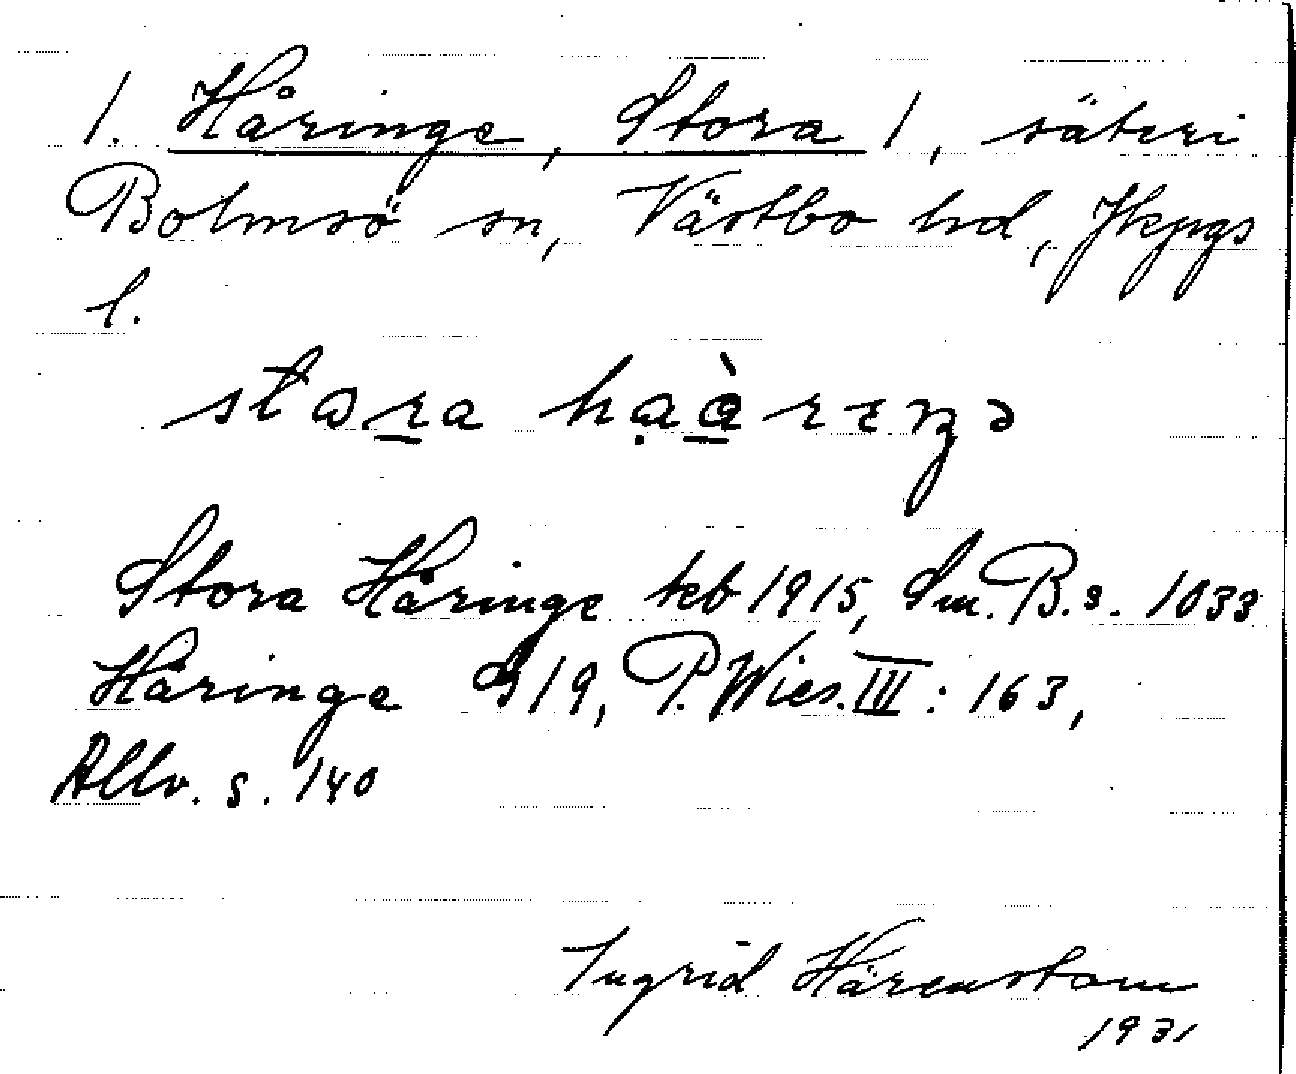 1. Håringe, Stora 1, säteri
Bolmsö sn, Västbo hd, Jkpgs
l.
Stora Håringe teb 1915, Sm. B. s. 1033
Håringe G19, P. Wies. III: 163,
Allv. s. 140
Ingrid Härenstam
1931